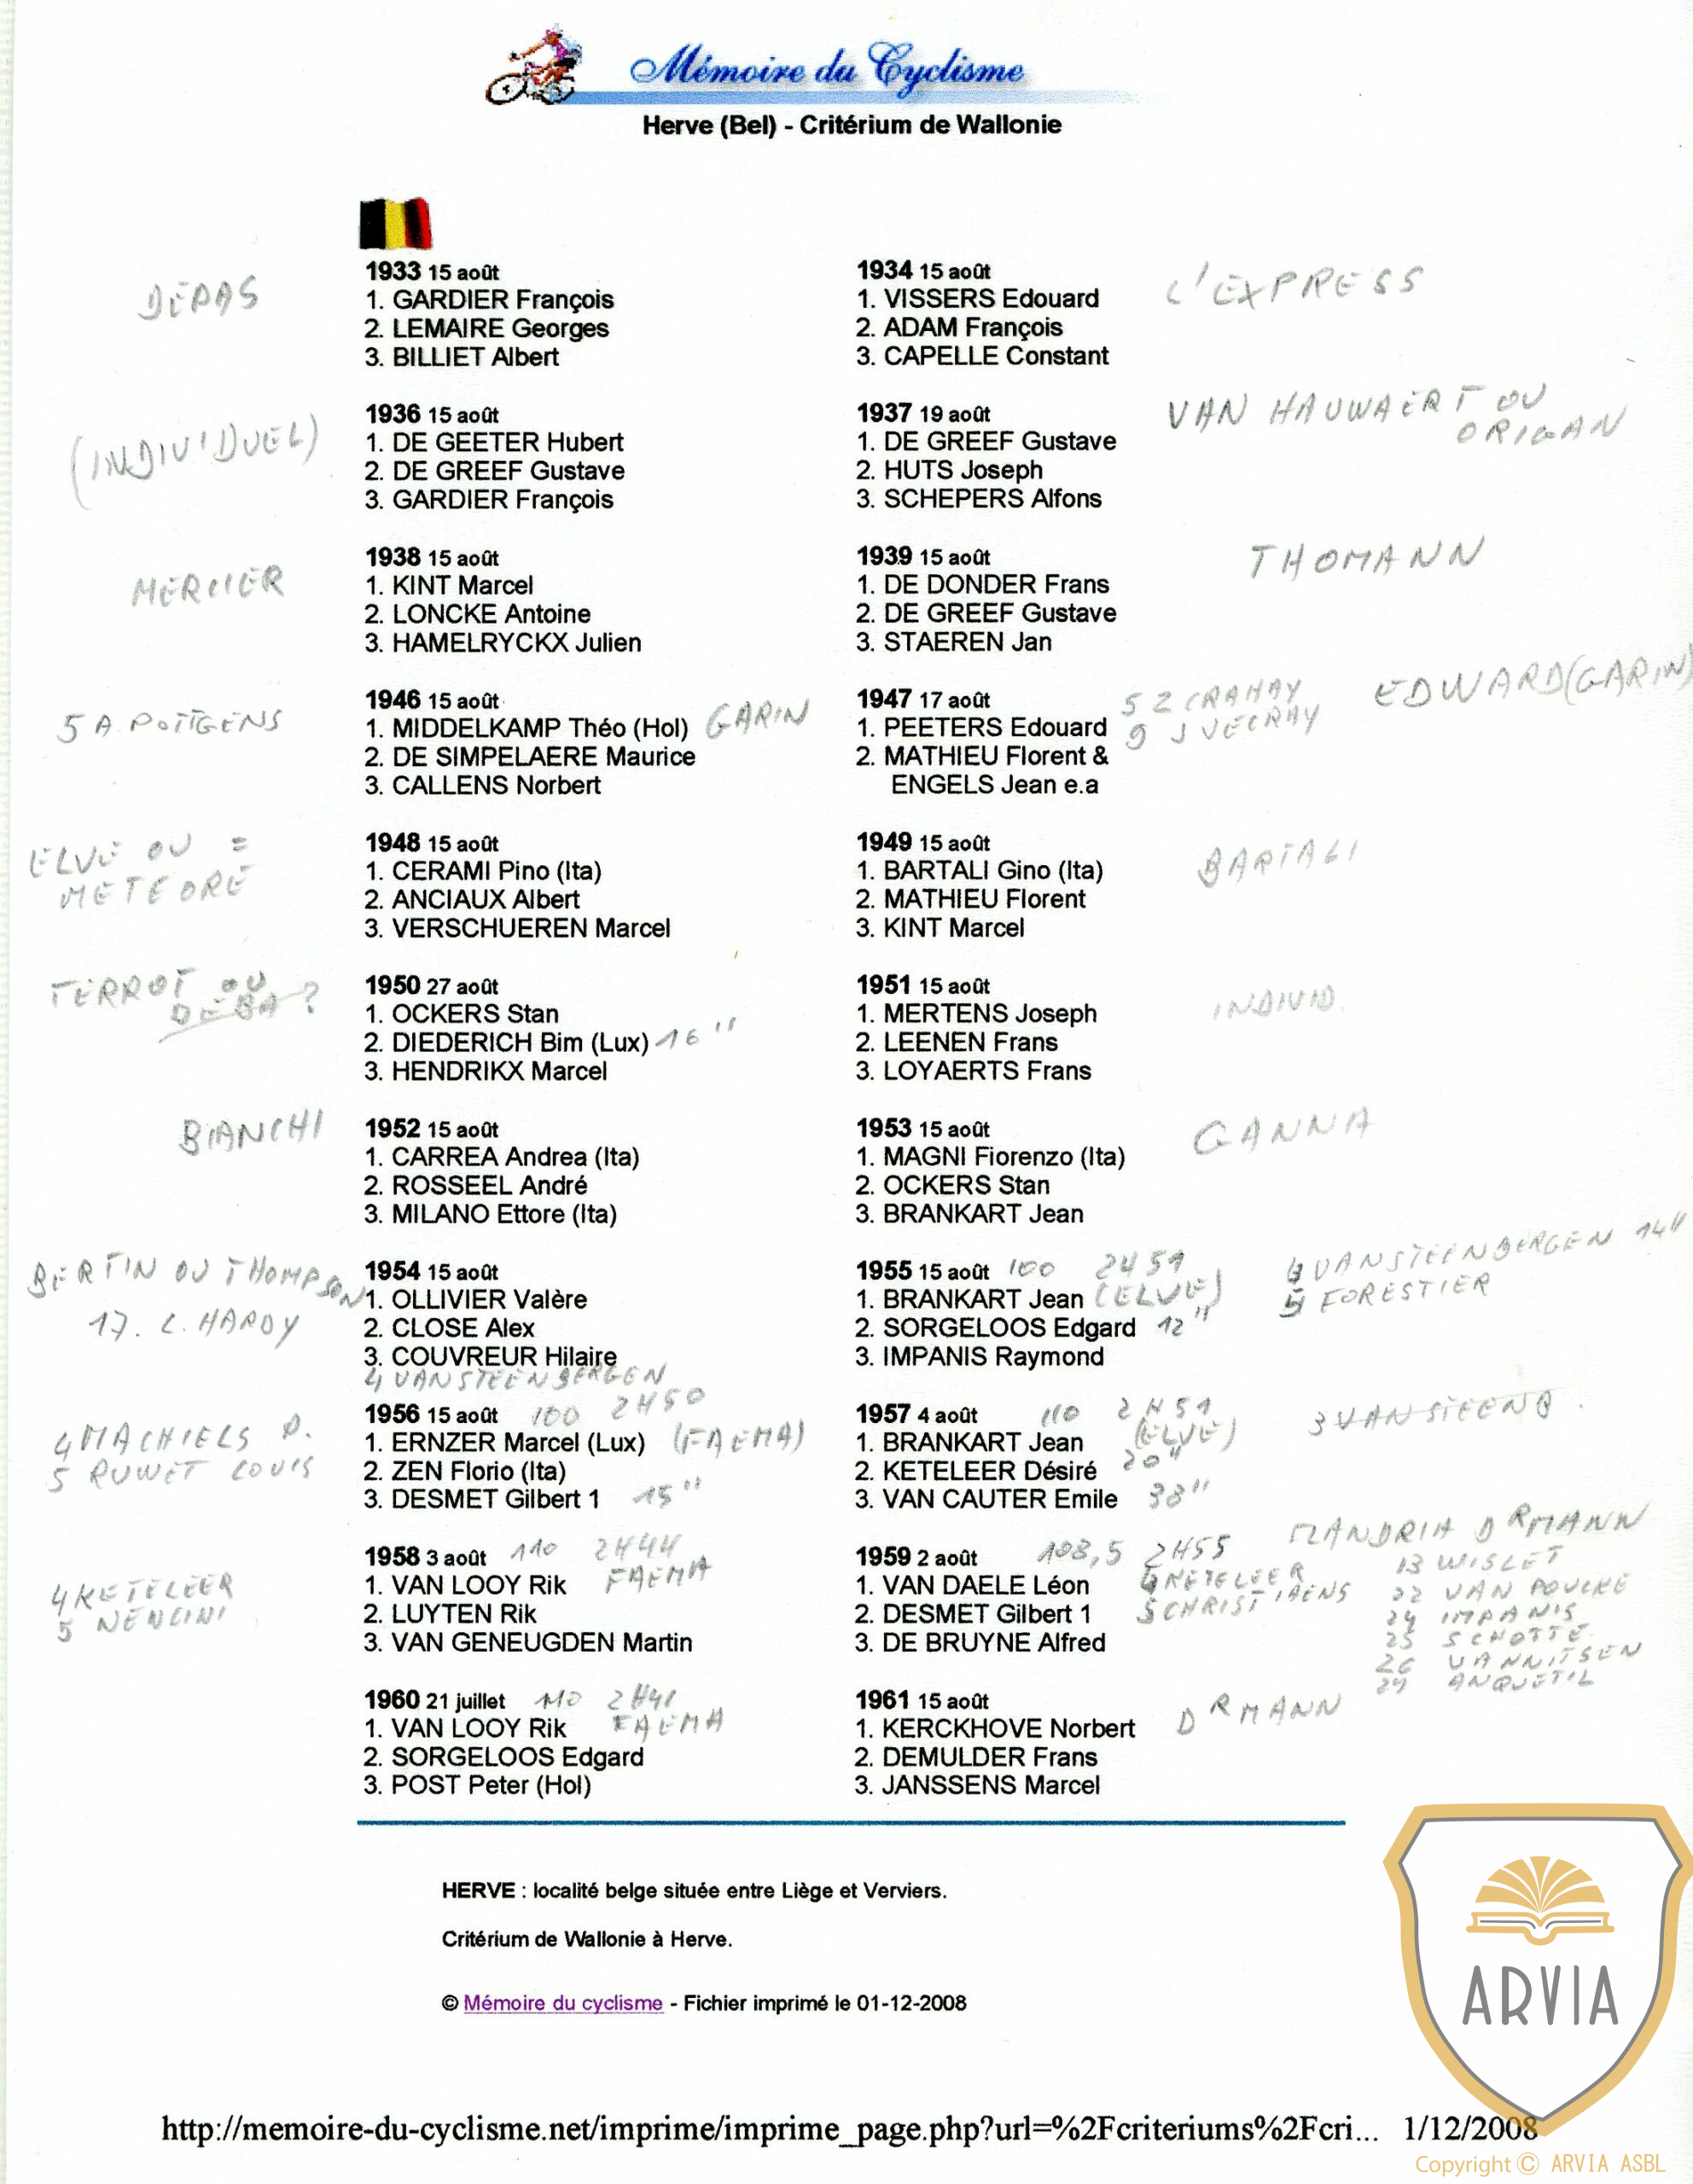 Mémoire du Cyclisme
Herve (Bel) - Critérium de Wallonie
DEPAS
1933 15 août
1. GARDIER François
2. LEMAIRE Georges
3. BILLIET Albert
1934 15 août
1. VISSERS Edouard
2. ADAM François
3. CAPELLE Constant
L'EXPRESS
(INDIVIDUEL)
1936 15 août
1. DE GEETER Hubert
2. DE GREEF Gustave
3. GARDIER François
1937 19 août
1. DE GREEF Gustave
2. HUTS Joseph
3. SCHEPERS Alfons
VAN HAUWAERT OU
ORIGAN
MERCIER
1938 15 août
1. KINT Marcel
2. LONCKE Antoine
3. HAMELRYCKX Julien
1939 15 août
1. DE DONDER Frans
2. DE GREEF Gustave
3. STAEREN Jan
THOMANN
5 A POTTGENS
1946 15 août
1. MIDDELKAMP Théo (Hol) GARIN
2. DE SIMPELAERE Maurice
3. CALLENS Norbert
1947 17 août 5 Z CRAHAY
1. PEETERS Edouard 9 J VECRAY
2. MATHIEU Florent &
ENGELS Jean e.a
EDWARD (GARIN)
ELVE OU =
METEORE
1948 15 août
1. CERAMI Pino (Ita)
2. ANCIAUX Albert
3. VERSCHUEREN Marcel
1949 15 août
1. BARTALI Gino (Ita)
2. MATHIEU Florent
3. KINT Marcel
BARTALI
TERROT OU
DEBA ?
1950 27 août
1. OCKERS Stan
2. DIEDERICH Bim (Lux) 16"
3. HENDRIKX Marcel
1951 15 août
1. MERTENS Joseph
2. LEENEN Frans
3. LOYAERTS Frans
INDIVID.
BIANCHI
1952 15 août
1. CARREA Andrea (Ita)
2. ROSSEEL André
3. MILANO Ettore (Ita)
1953 15 août
1. MAGNI Fiorenzo (Ita)
2. OCKERS Stan
3. BRANKART Jean
GANNA
BERTIN OU THOMPSON
17. L. HARDY
1954 15 août
1. OLLIVIER Valère
2. CLOSE Alex
3. COUVREUR Hilaire
4 VANSTEENBERGEN
1955 15 août 100 2H51
1. BRANKART Jean (ELVE)
2. SORGELOOS Edgard 12"
3. IMPANIS Raymond
4 VANSTEENBERGEN 14"
5 FORESTIER
4 MACHIELS P.
5 RUWET LOUIS
1956 15 août 100 2H50
1. ERNZER Marcel (Lux) (FAEMA)
2. ZEN Florio (Ita)
3. DESMET Gilbert 1 15"
1957 4 août 110 2H51
1. BRANKART Jean (ELVE)
2. KETELEER Désiré 20"
3. VAN CAUTER Emile 38"
3 VANSTEENB.
4 KETELEER
5 NENCINI
1958 3 août 110 2H44
1. VAN LOOY Rik FAEMA
2. LUYTEN Rik
3. VAN GENEUGDEN Martin
1959 2 août 108,5 2H55
1. VAN DAELE Léon 4 KETELEER
2. DESMET Gilbert 1 5 CHRISTIAENS
3. DE BRUYNE Alfred
DRMANN
13 WISLET
22 VAN POUCKE
24 IMPANIS
25 SCHOTTE
26 VANNITSEN
29 ANQUETIL
1960 21 juillet 110 2H41
1. VAN LOOY Rik FAEMA
2. SORGELOOS Edgard
3. POST Peter (Hol)
1961 15 août
1. KERCKHOVE Norbert
2. DEMULDER Frans
3. JANSSENS Marcel
DRMANN
HERVE : localité belge située entre Liège et Verviers.
Critérium de Wallonie à Herve.
© Mémoire du cyclisme - Fichier imprimé le 01-12-2008
ARVIA
http://memoire-du-cyclisme.net/imprime/imprime_page.php?url=%2Fcriteriums%2Fcri... 1/12/2008
Copyright © ARVIA ASBL